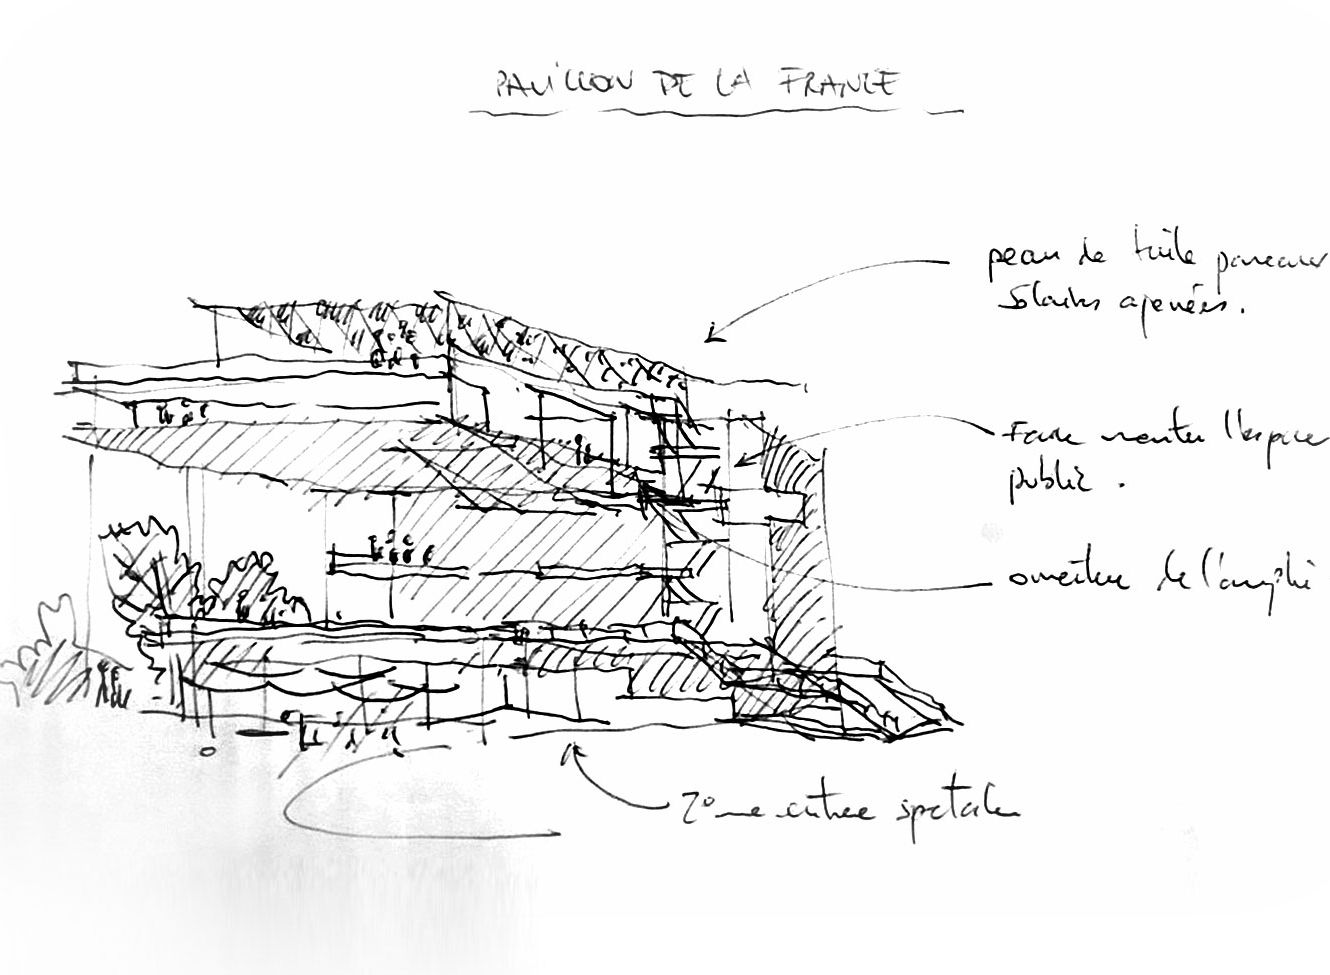 PAVILLON DE LA FRANCE
peau de tuile panneaux
solaires ajourées.
Faire monter l'espace
public.
ouverture de l'amphi
2ème entrée spectacle